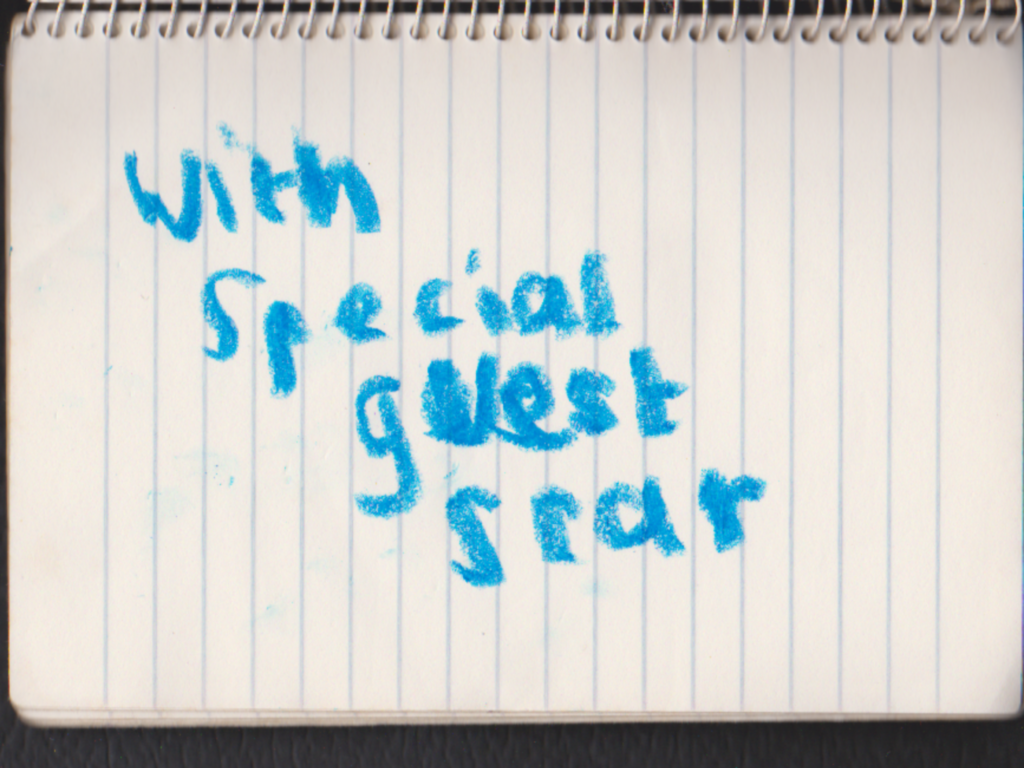 with
special
guest
srar